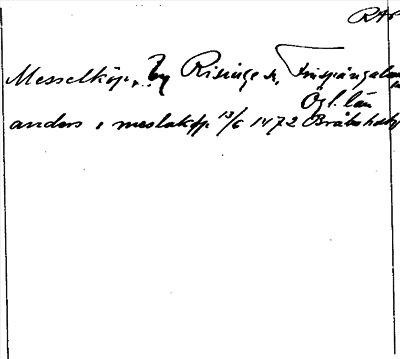 RAP
Messelköp, by Risinge sn, Finspångalän
Ögl. län
anders i meslaköp 13/6 1472 Bråbo hd